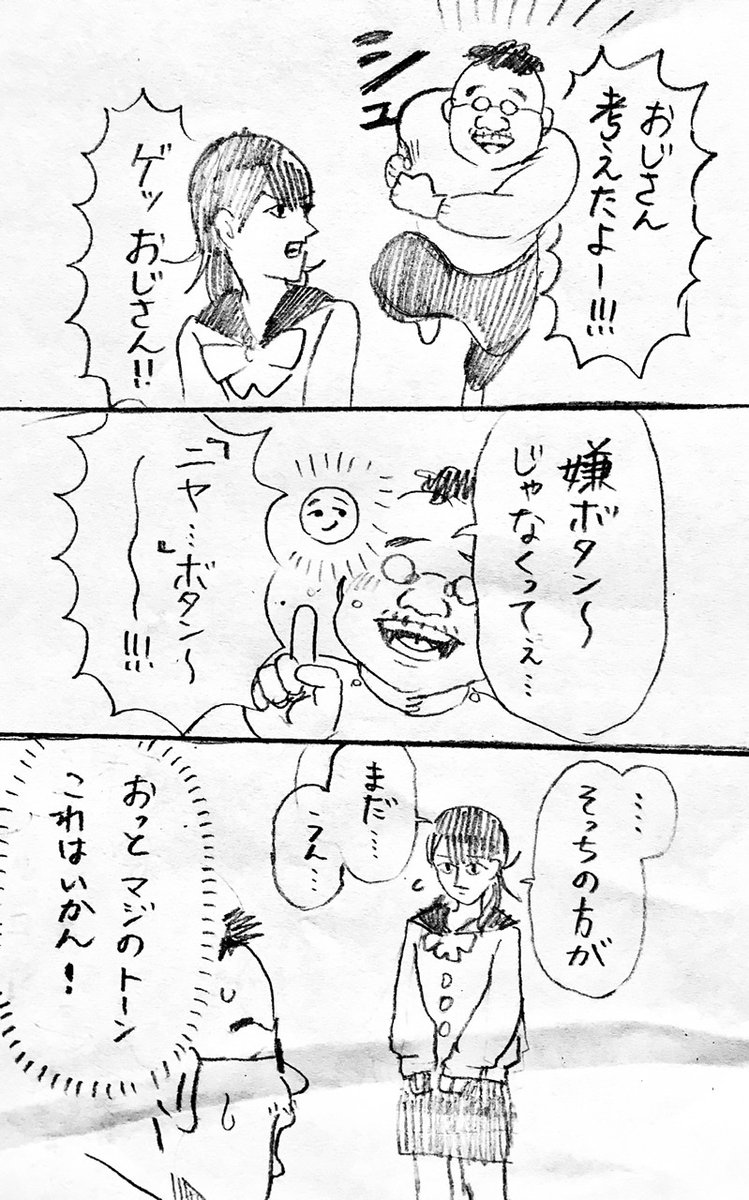 おじさん
考えたよー!!!
シュ
ゲッ おじさん!!
嫌ボタン〜
じゃなくってぇ…
『ニヤ…ボタン〜』
〜!!!
‥‥
そっちの方が
まだ……
うん…
おっと マジのトーン
これはいかん!